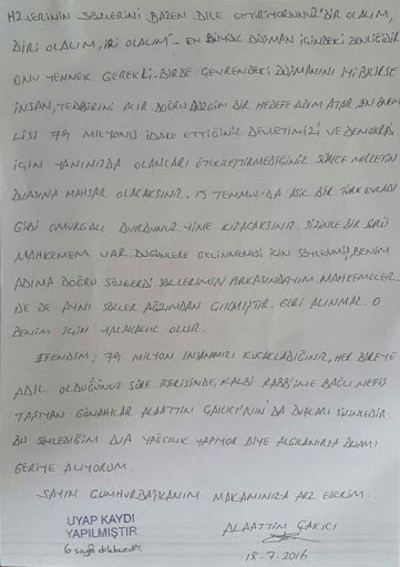 HZ.LERİNİN SÖZLERİNİ BAZEN DİLE GETİRİYORSUNUZ "BİR OLALIM,
DİRİ OLALIM, İRİ OLALIM" - EN BÜYÜK DÜŞMAN İÇİNDEKİ BENLİĞİDİR
ONU YENMEK GEREKLİ. BİRDE ÇEVRENDEKİ DÜŞMANINI İYİ BİLİRSE
İNSAN, TEDBİRİNİ ALIR. DOĞRU DÜZGÜN BİR HEDEFE ADIM ATAR. EN ÖNEM
LİSİ 79 MİLYONU İDARE ETTİĞİNİZ DEVLETİMİZİ VE DEMOKRASİ
İÇİN YANINIZDA OLANLARI ÖTEKİLEŞTİRMEDİĞİNİZ SÜRECE MİLLETİN
DUASINA MAHSAR OLACAKSINIZ. 15 TEMMUZ'DA ASİL BİR TÜRK EVLADI
GİBİ OMURGALI DURDUNUZ. YİNE KIZACAKSINIZ. SİZİNLE BİR SÜRÜ
MAHKEMEM VAR. DÜĞÜNLERE GELİNMEMESİ İÇİN SÖYLENMİŞ, BENİM
ADIMA DOĞRU SÖZLERDİ. SÖZLERİMİN ARKASINDAYIM. MAHKEMELER
DE DE AYNI SÖZLER AĞZIMDAN ÇIKMIŞTIR. GERİ ALINMAZ. O
BENİM İÇİN YALAKALIK OLUR.
EFENDİM; 79 MİLYON İNSANIMIZI KUCAKLADIĞINIZ, HER BİREYE
ADİL OLDUĞUNUZ SÜRE İÇERİSİNDE, KALBİ RABB'İNE BAĞLI NEFİS
TAŞIYAN GÜNAHKAR ALAATTİN ÇAKICI'NIN DA DUALARI SİZİNLEDİR.
BU SÖYLEDİĞİM DUA YAĞCILIK YAPIYOR DİYE ALGILANIRSA DUAMI
GERİYE ALIYORUM.
SAYIN CUMHURBAŞKANIM MAKAMINIZA ARZ EDERİM.
UYAP KAYDI
YAPILMIŞTIR
6 sayfa dilekçedir.
ALAATTİN ÇAKICI
18.7.2016